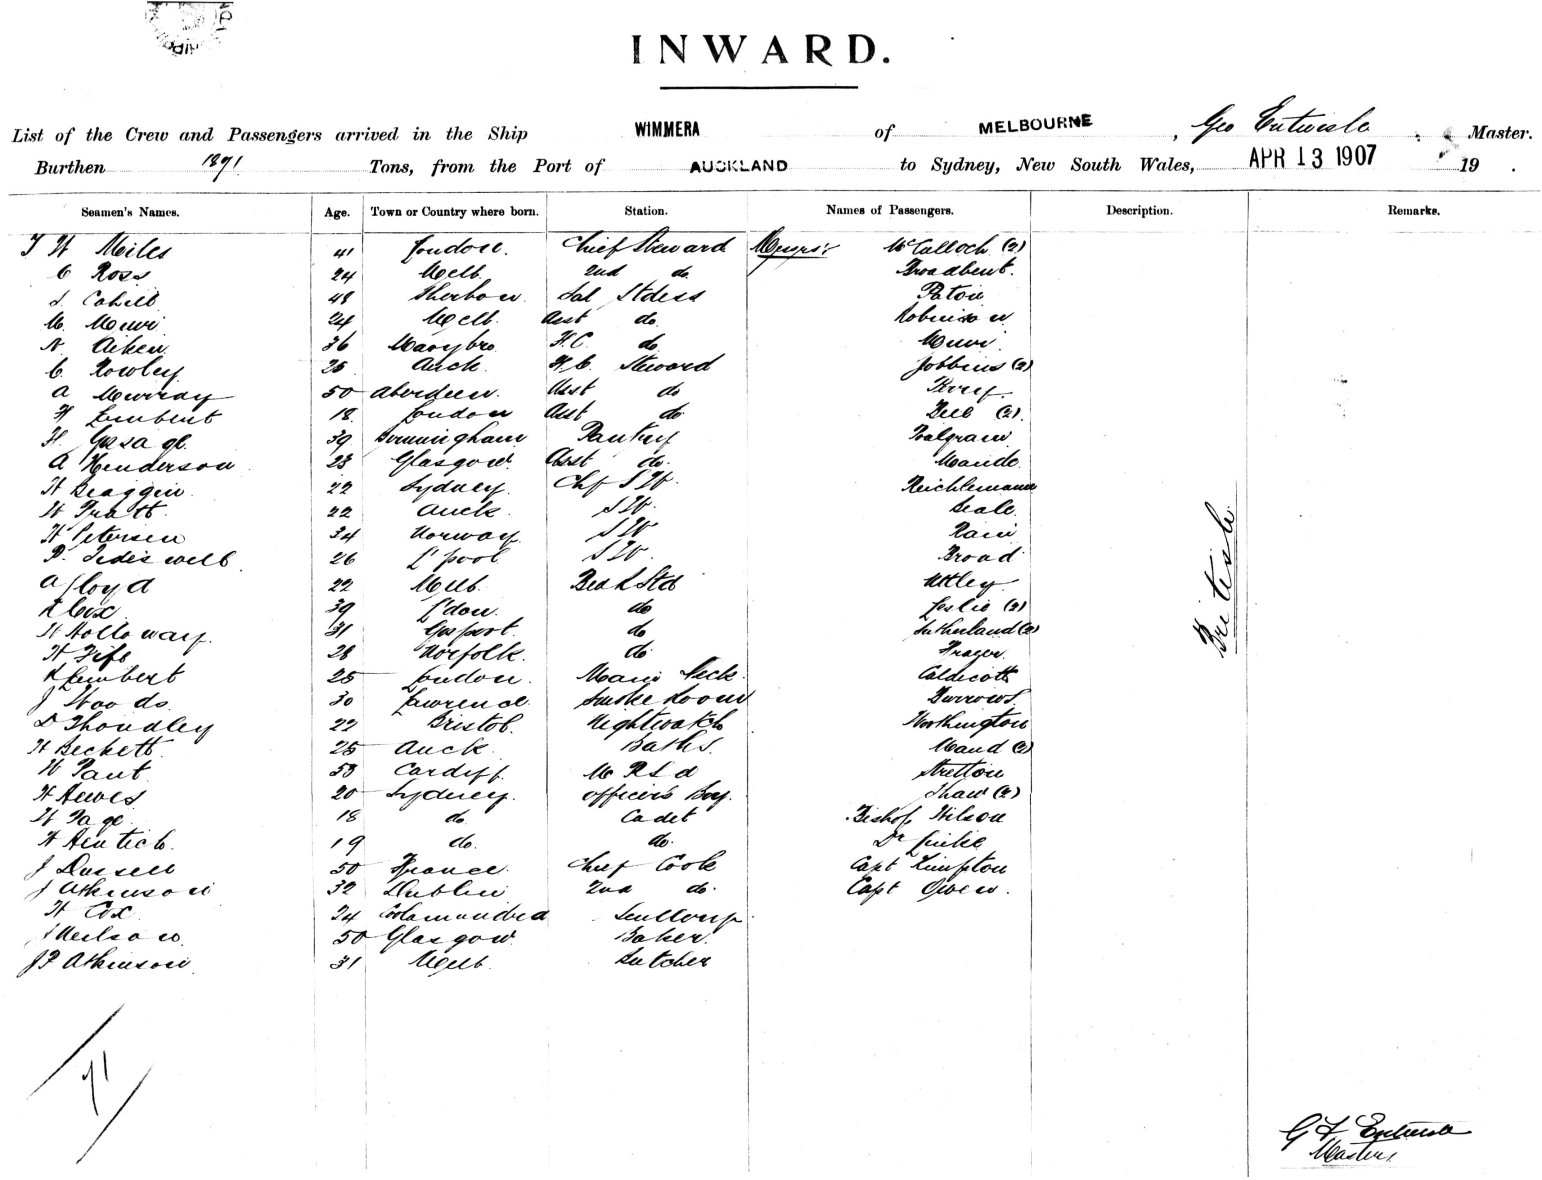 INWARD.
List of the Crew and Passengers arrived in the Ship WIMMERA of MELBOURNE, Geo Entwisle Master.
Burthen 1891 Tons, from the Port of AUCKLAND to Sydney, New South Wales, APR 13 1907 19 .
Seamen's Names. Age. Town or Country where born. Station. Names of Passengers. Description. Remarks.
T W Miles 41 London. Chief Steward Messrs: McCulloch (2)
C Ross 24 Melb. 2nd do. Broadbent.
Cahill 48 Sal Stdess Paton
M. Muir 24 Melb. Asst do. Robinson
N. Aiken 36 Marybro F.C. do Muir
C. Rowley 25 Auck. F.C. Steward Jobbins (2)
A Murray 50 Aberdeen. Asst do
W Lambert 18 London Asst do (2).
H. 39 Birmingham Pantry
A Henderson 23 Glasgow. Asst do. Maude.
W 22 Sydney. Chf S W. Reichlemann
W Pratt 22 Auck. S W. Seale
H Petersen 34 Norway S W Rain
P. Tideswell 26 L'pool S W. Broad
A Lloyd 22 Melb. Bed R Std Uttley
Cox 39 L'don. do Leslie (2)
W Holloway. 31 Gosport. do Sutherland (2)
W Fife 28 Norfolk. do Fraser.
Lambert 25 London. Main Deck. Caldicott
J Woods. 30 Lawrence. Smoke Room Burrows.
D Thondley 22 Bristol. Nightwatch Worthington
W Beckett 25 Auck. Baths. Maud (2)
W Pant 53 Cardiff. M R S d Stretton
H Hewes 20 Sydney. Officers Boy. Shaw (2)
W Page 18 do. Cadet Bishop Wilson
W 19 do. do. Dr
J Dussell 50 France. Chief Cook Capt Kimpton
J Atkinson 32 Dublin 2nd do. Capt Owen.
W Cox 24 Cootamundra Scullery
Neilson 50 Glasgow Baker.
J F Atkinson 31 Melb. Butcher
British
71
G F Entwisle
Master